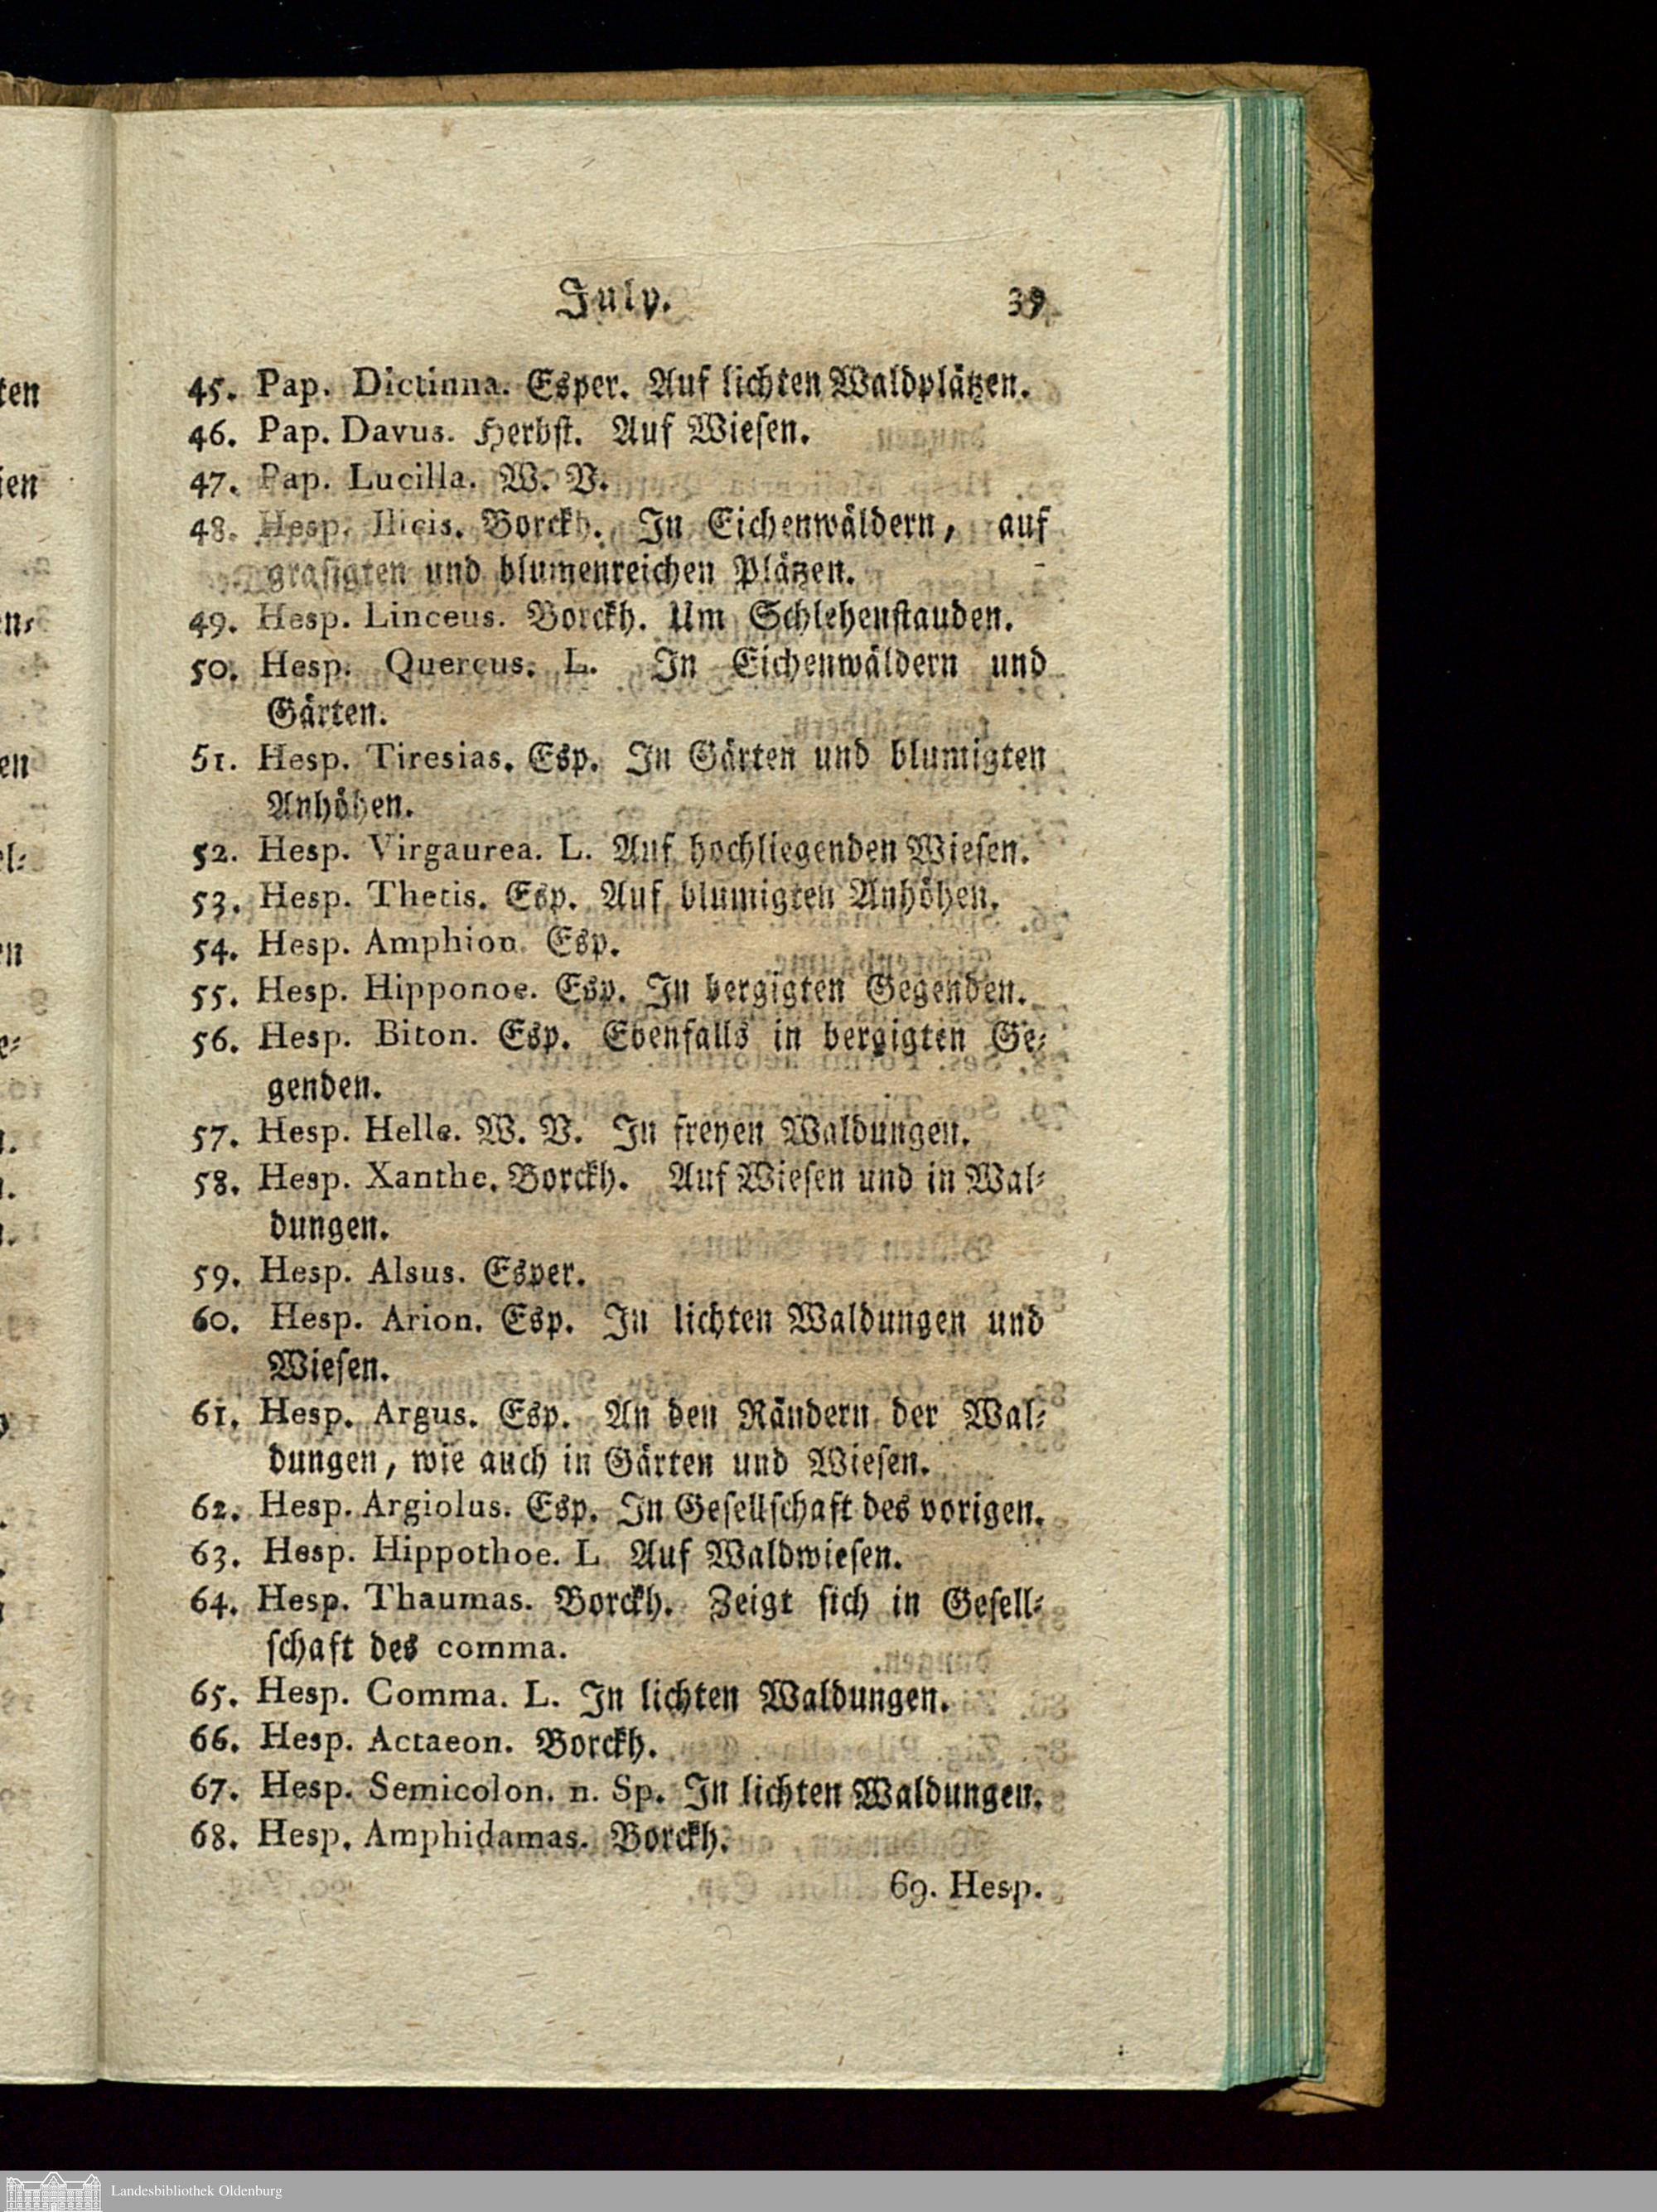 July. 39
45. Pap. Dictinna. Esper. Auf lichten Waldplätzen.
46. Pap. Davus. Herbst. Auf Wiesen.
47. Pap. Lucilla. W. V.
48. Hesp. Ilicis. Borckh. In Eichenwäldern, auf
grasigten und blumenreichen Plätzen.
49. Hesp. Linceus. Borckh. Um Schlehenstauden.
50. Hesp. Quercus. L. In Eichenwäldern und
Gärten.
51. Hesp. Tiresias. Esp. In Gärten und blumigten
Anhöhen.
52. Hesp. Virgaurea. L. Auf hochliegenden Wiesen.
53. Hesp. Thetis. Esp. Auf blumigten Anhöhen.
54. Hesp. Amphion. Esp.
55. Hesp. Hipponoe. Esp. In bergigten Gegenden.
56. Hesp. Biton. Esp. Ebenfalls in bergigten Ge-
genden.
57. Hesp. Helle. W. V. In freyen Waldungen.
58. Hesp. Xanthe. Borckh. Auf Wiesen und in Wal-
dungen.
59. Hesp. Alsus. Esper.
60. Hesp. Arion. Esp. In lichten Waldungen und
Wiesen.
61. Hesp. Argus. Esp. An den Rändern der Wal-
dungen, wie auch in Gärten und Wiesen.
62. Hesp. Argiolus. Esp. In Gesellschaft des vorigen.
63. Hesp. Hippothoe. L Auf Waldwiesen.
64. Hesp. Thaumas. Borckh. Zeigt sich in Gesell-
schaft des comma.
65. Hesp. Comma. L. In lichten Waldungen.
66. Hesp. Actaeon. Borckh.
67. Hesp. Semicolon. n. Sp. In lichten Waldungen.
68. Hesp. Amphidamas. Borckh.
69. Hesp.
Landesbibliothek Oldenburg